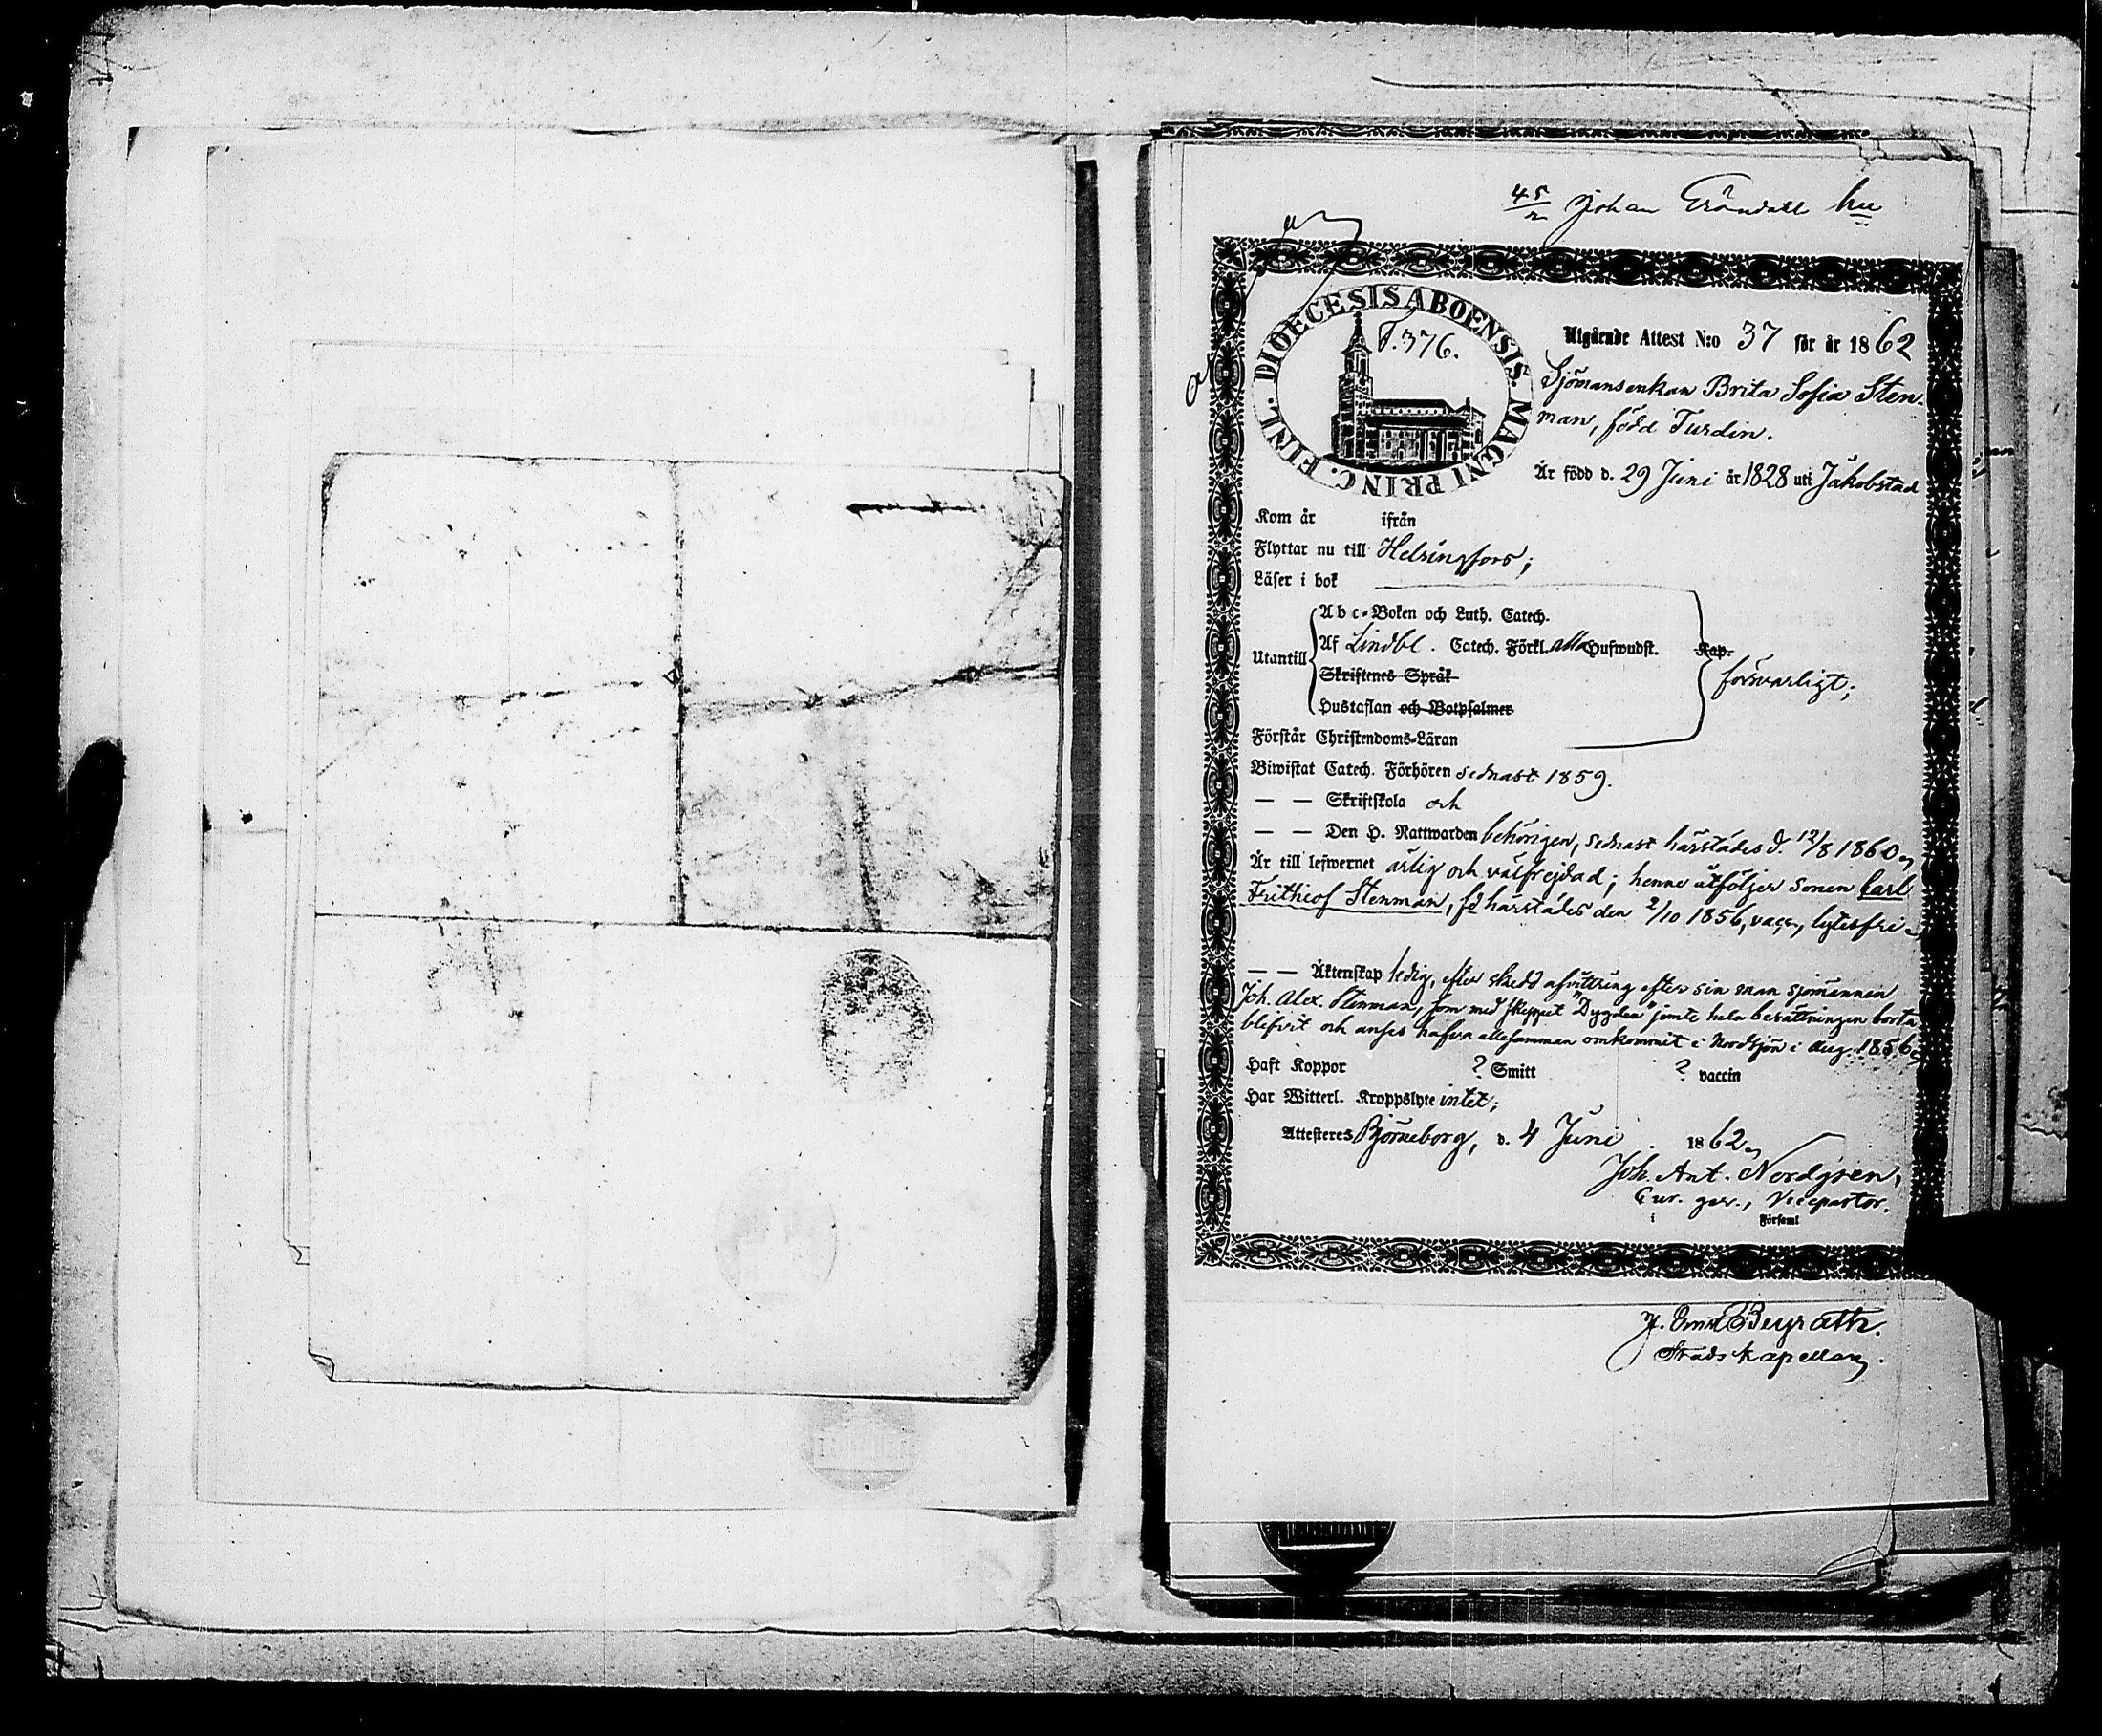 45/2 Johan Gröndahl hu
DIOECESIS ABOENSIS. MAGNI PRINC. FINL.
F.376.
Utgående Attest N:o 37 för år 1862
Sjömansenkan Brita Sofia Sten-
man, född Turdin.
Är född d. 29 Juni år 1828 uti Jakobstad
Kom år ifrån
Flyttar nu till Helsingfors;
Läser i bok
Abc-Boken och Luth. Catech.
Utantill Af Lindbl. Catech. Förkl. alla Hufwudst. Kap.
försvarligt;
Skriftenes Språk
Hustaflan och Botpsalmer
Förstår Christendoms-Läran
Biwistat Catech. Förhören sednast 1859.
— — Skriftskola och
— — Den H. Nattwarden behörigen, sednast härstädes d. 12/8 1860,
Är till lefwernet ärlig och välfrejdad; henne åtföljer sonen Carl
Frithiof Stenman, fd härstädes den 2/10 1856, vacc., lytesfri.
— — Äktenskap ledig, efter skedd afvittring efter sin man sjömannen
Joh. Alex. Stenman, som med skeppet "Dygden" jemte hela besättningen borta
blifvit och anses hafva allesamman omkommit i Nordsjön i Aug. 1856;
Haft Koppor ? Smitt ? vaccin
Har Witterl. Kroppslyte intet;
Attesteres Björneborg, d. 4 Juni 1862,
Joh. Ant. Nordgren,
Cur. ger., Vicepastor.
i Förseml
Beyrath.
Stadskapellan.